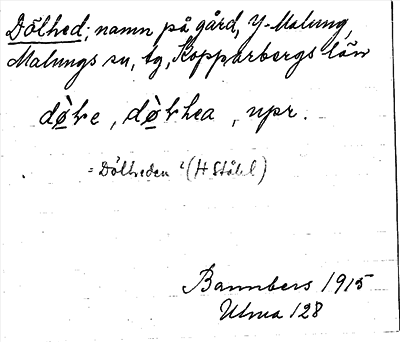 Dölhed; namn på gård, Y-Malung,
Malungs sn, tg, Kopparbergs län
dø̀ɫe, dø̀ɫhea, upr.
= Dölheden "(H Ståhl)
Bannbers 1915
Ulma 128